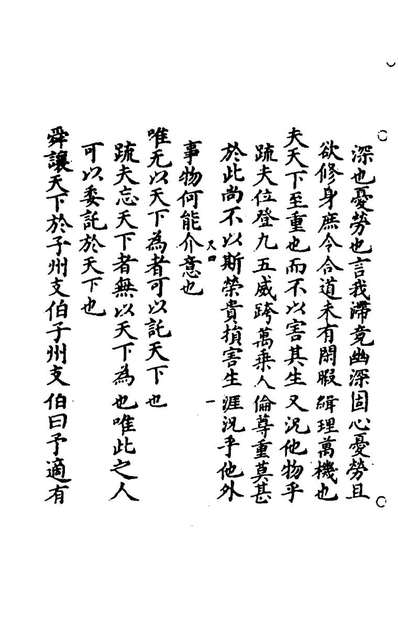 深也憂勞也言我滯竟幽深固心憂勞且
欲修身庶令合道未有閑暇緝理萬機也
夫天下至重也而不以害其生又況他物乎
疏夫位登九五威跨萬乘人倫尊重莫甚
於此尚不以斯榮貴損害生涯況乎他外
事物何能介意也
唯无以天下為者可以託天下也
疏夫忘天下者無以天下為也唯此之人
可以委託於天下也
舜讓天下於子州支伯子州支伯曰予適有